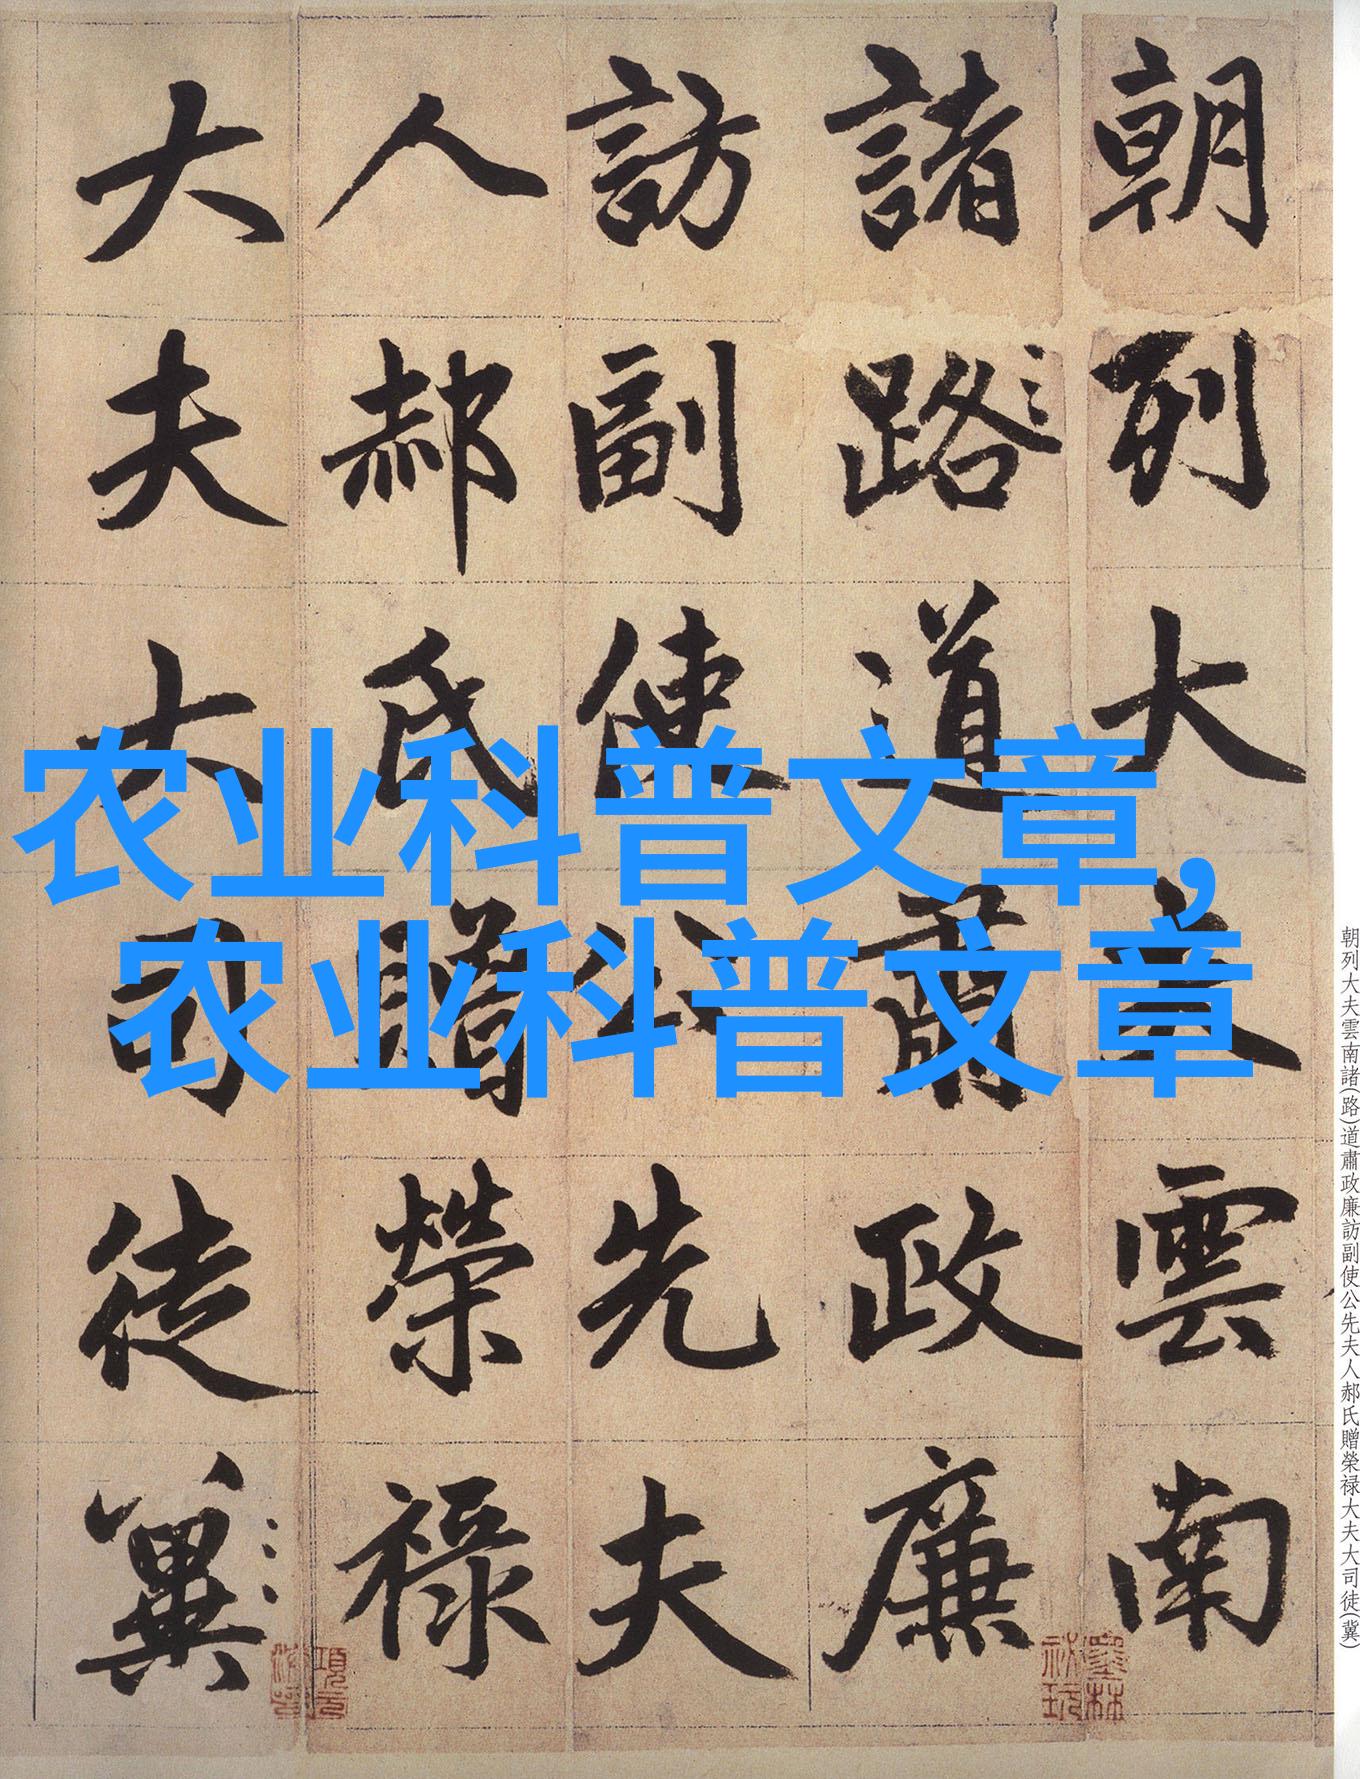 朝列大夫雲南
諸路道肅政廉
訪副使公先夫
人郝氏贈榮祿
大夫大司徒冀
农业科普文章,
农业科普文章
朝列大夫雲南諸(路)道肅政廉訪副使公先夫人郝氏贈榮禄大夫大司徒(冀)